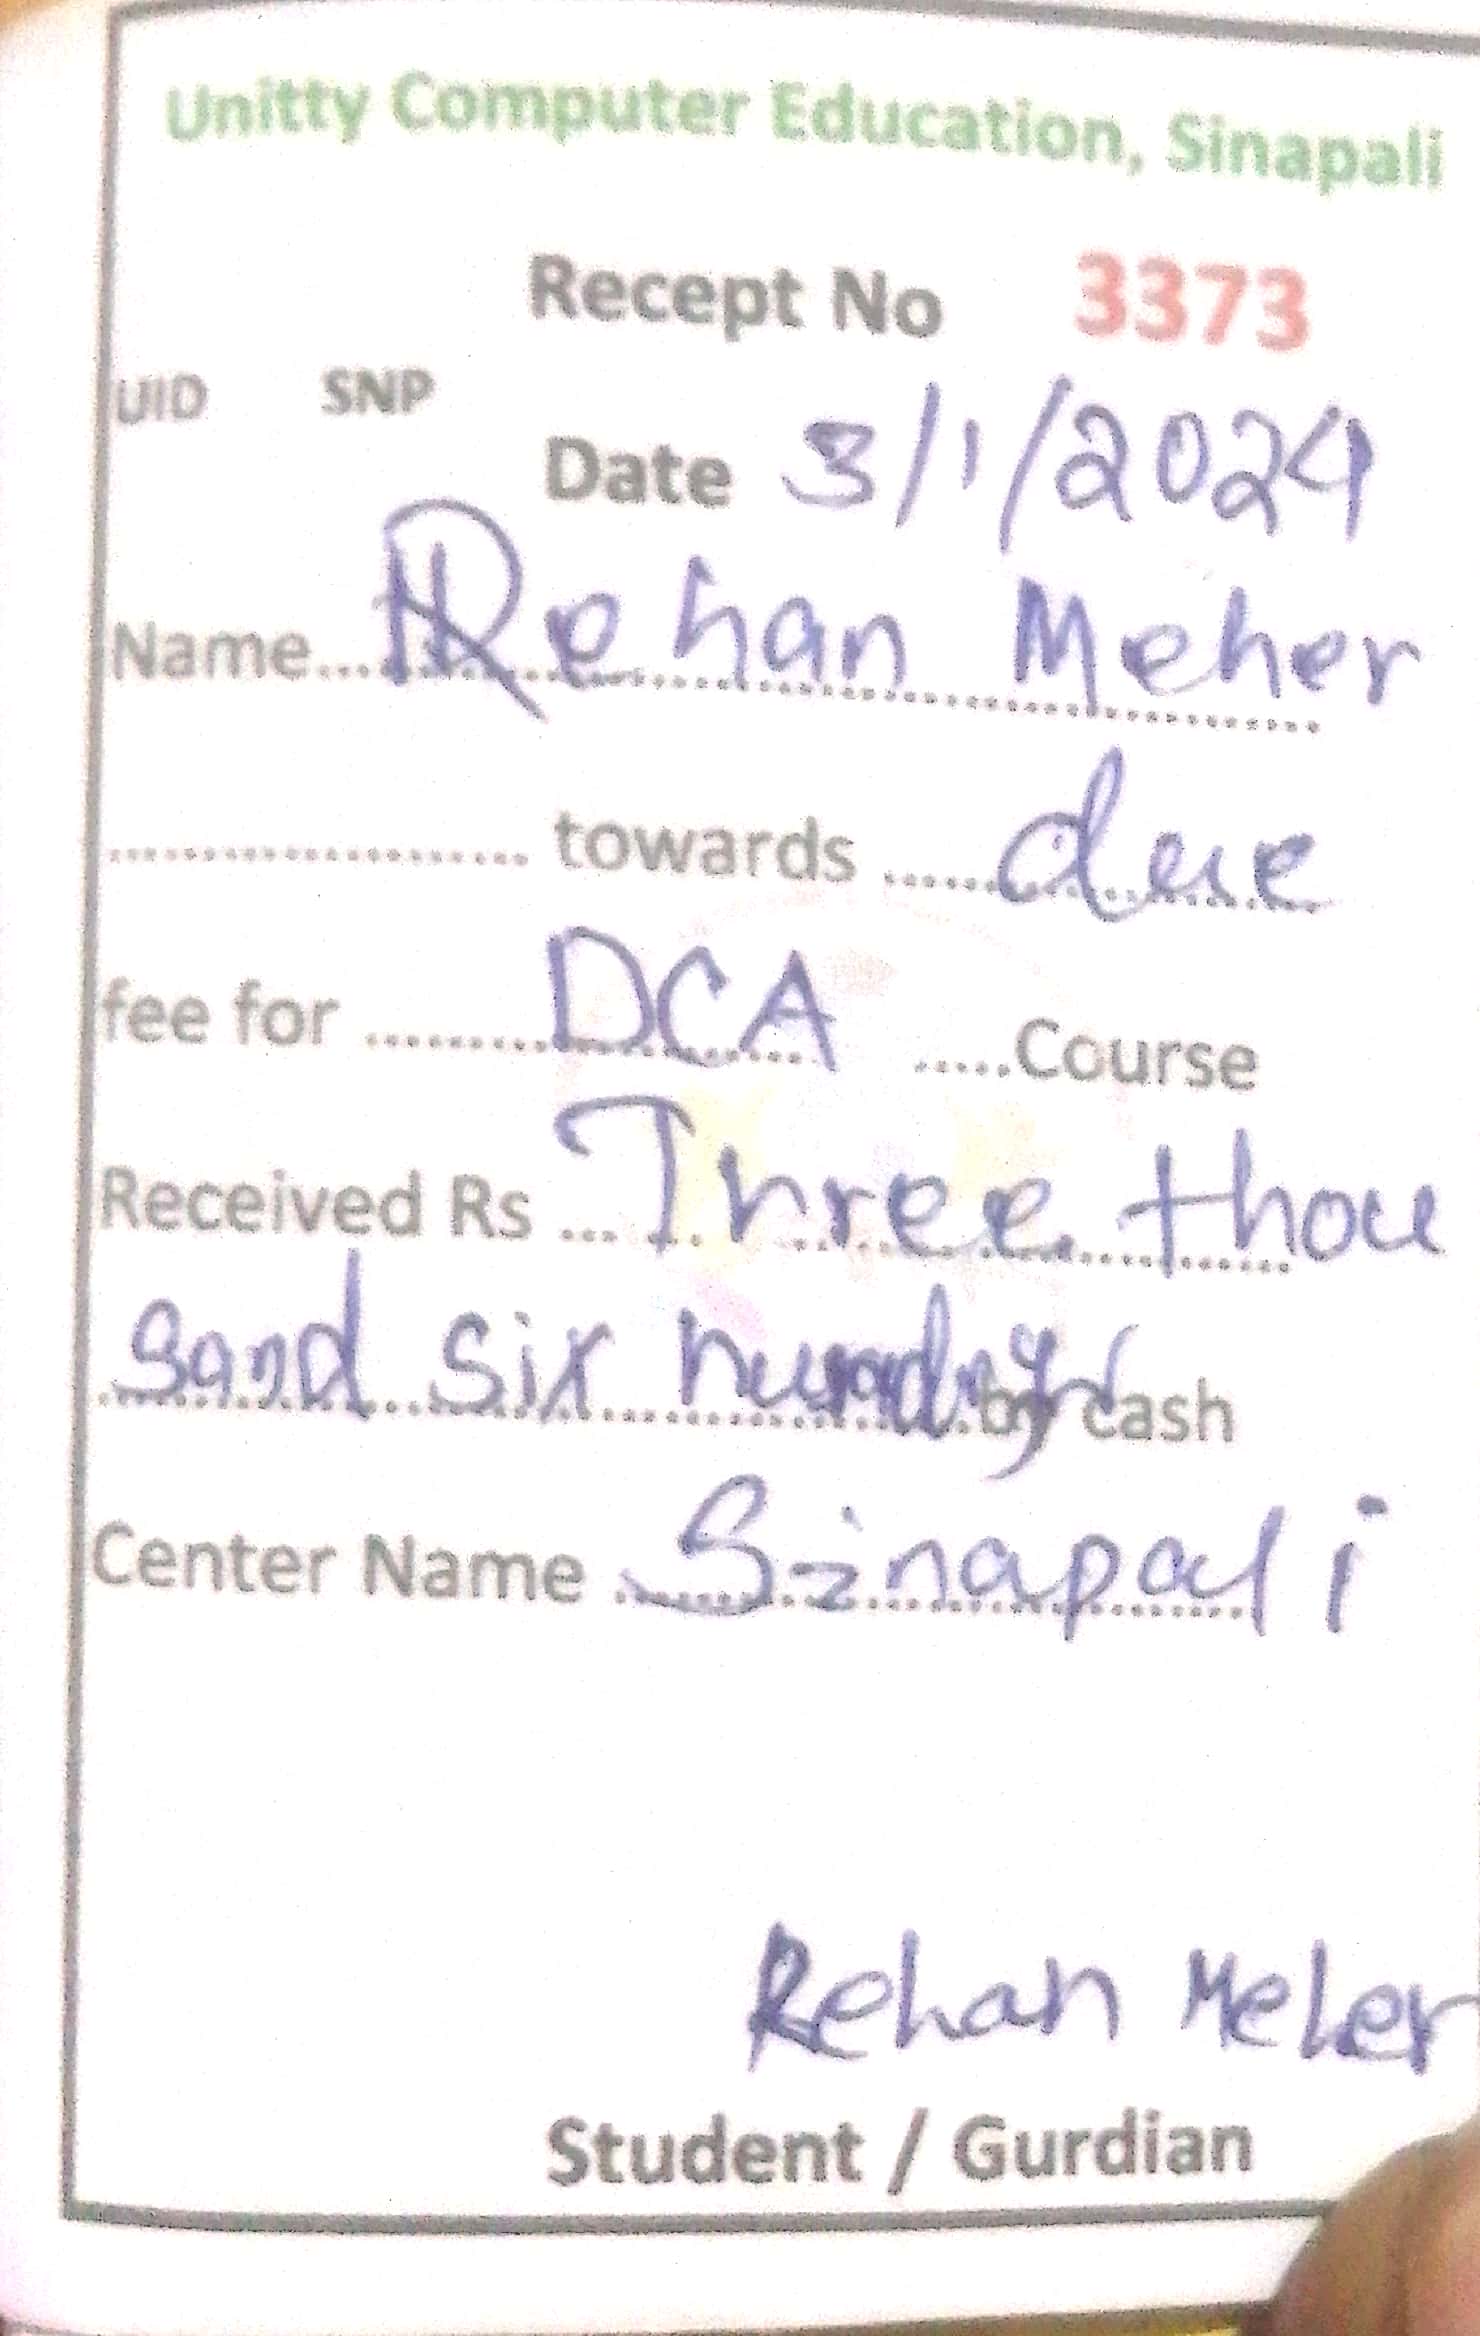 Unitty Computer Education, Sinapali
Recept No 3373
UID SNP
Date 3/1/2024
Name... Rehan Meher
.................... towards ..... due
fee for ........ DCA .....Course
Received Rs ... Three thou
sand six by cash
Center Name Sinapali
Rehan Meher
Student / Gurdian